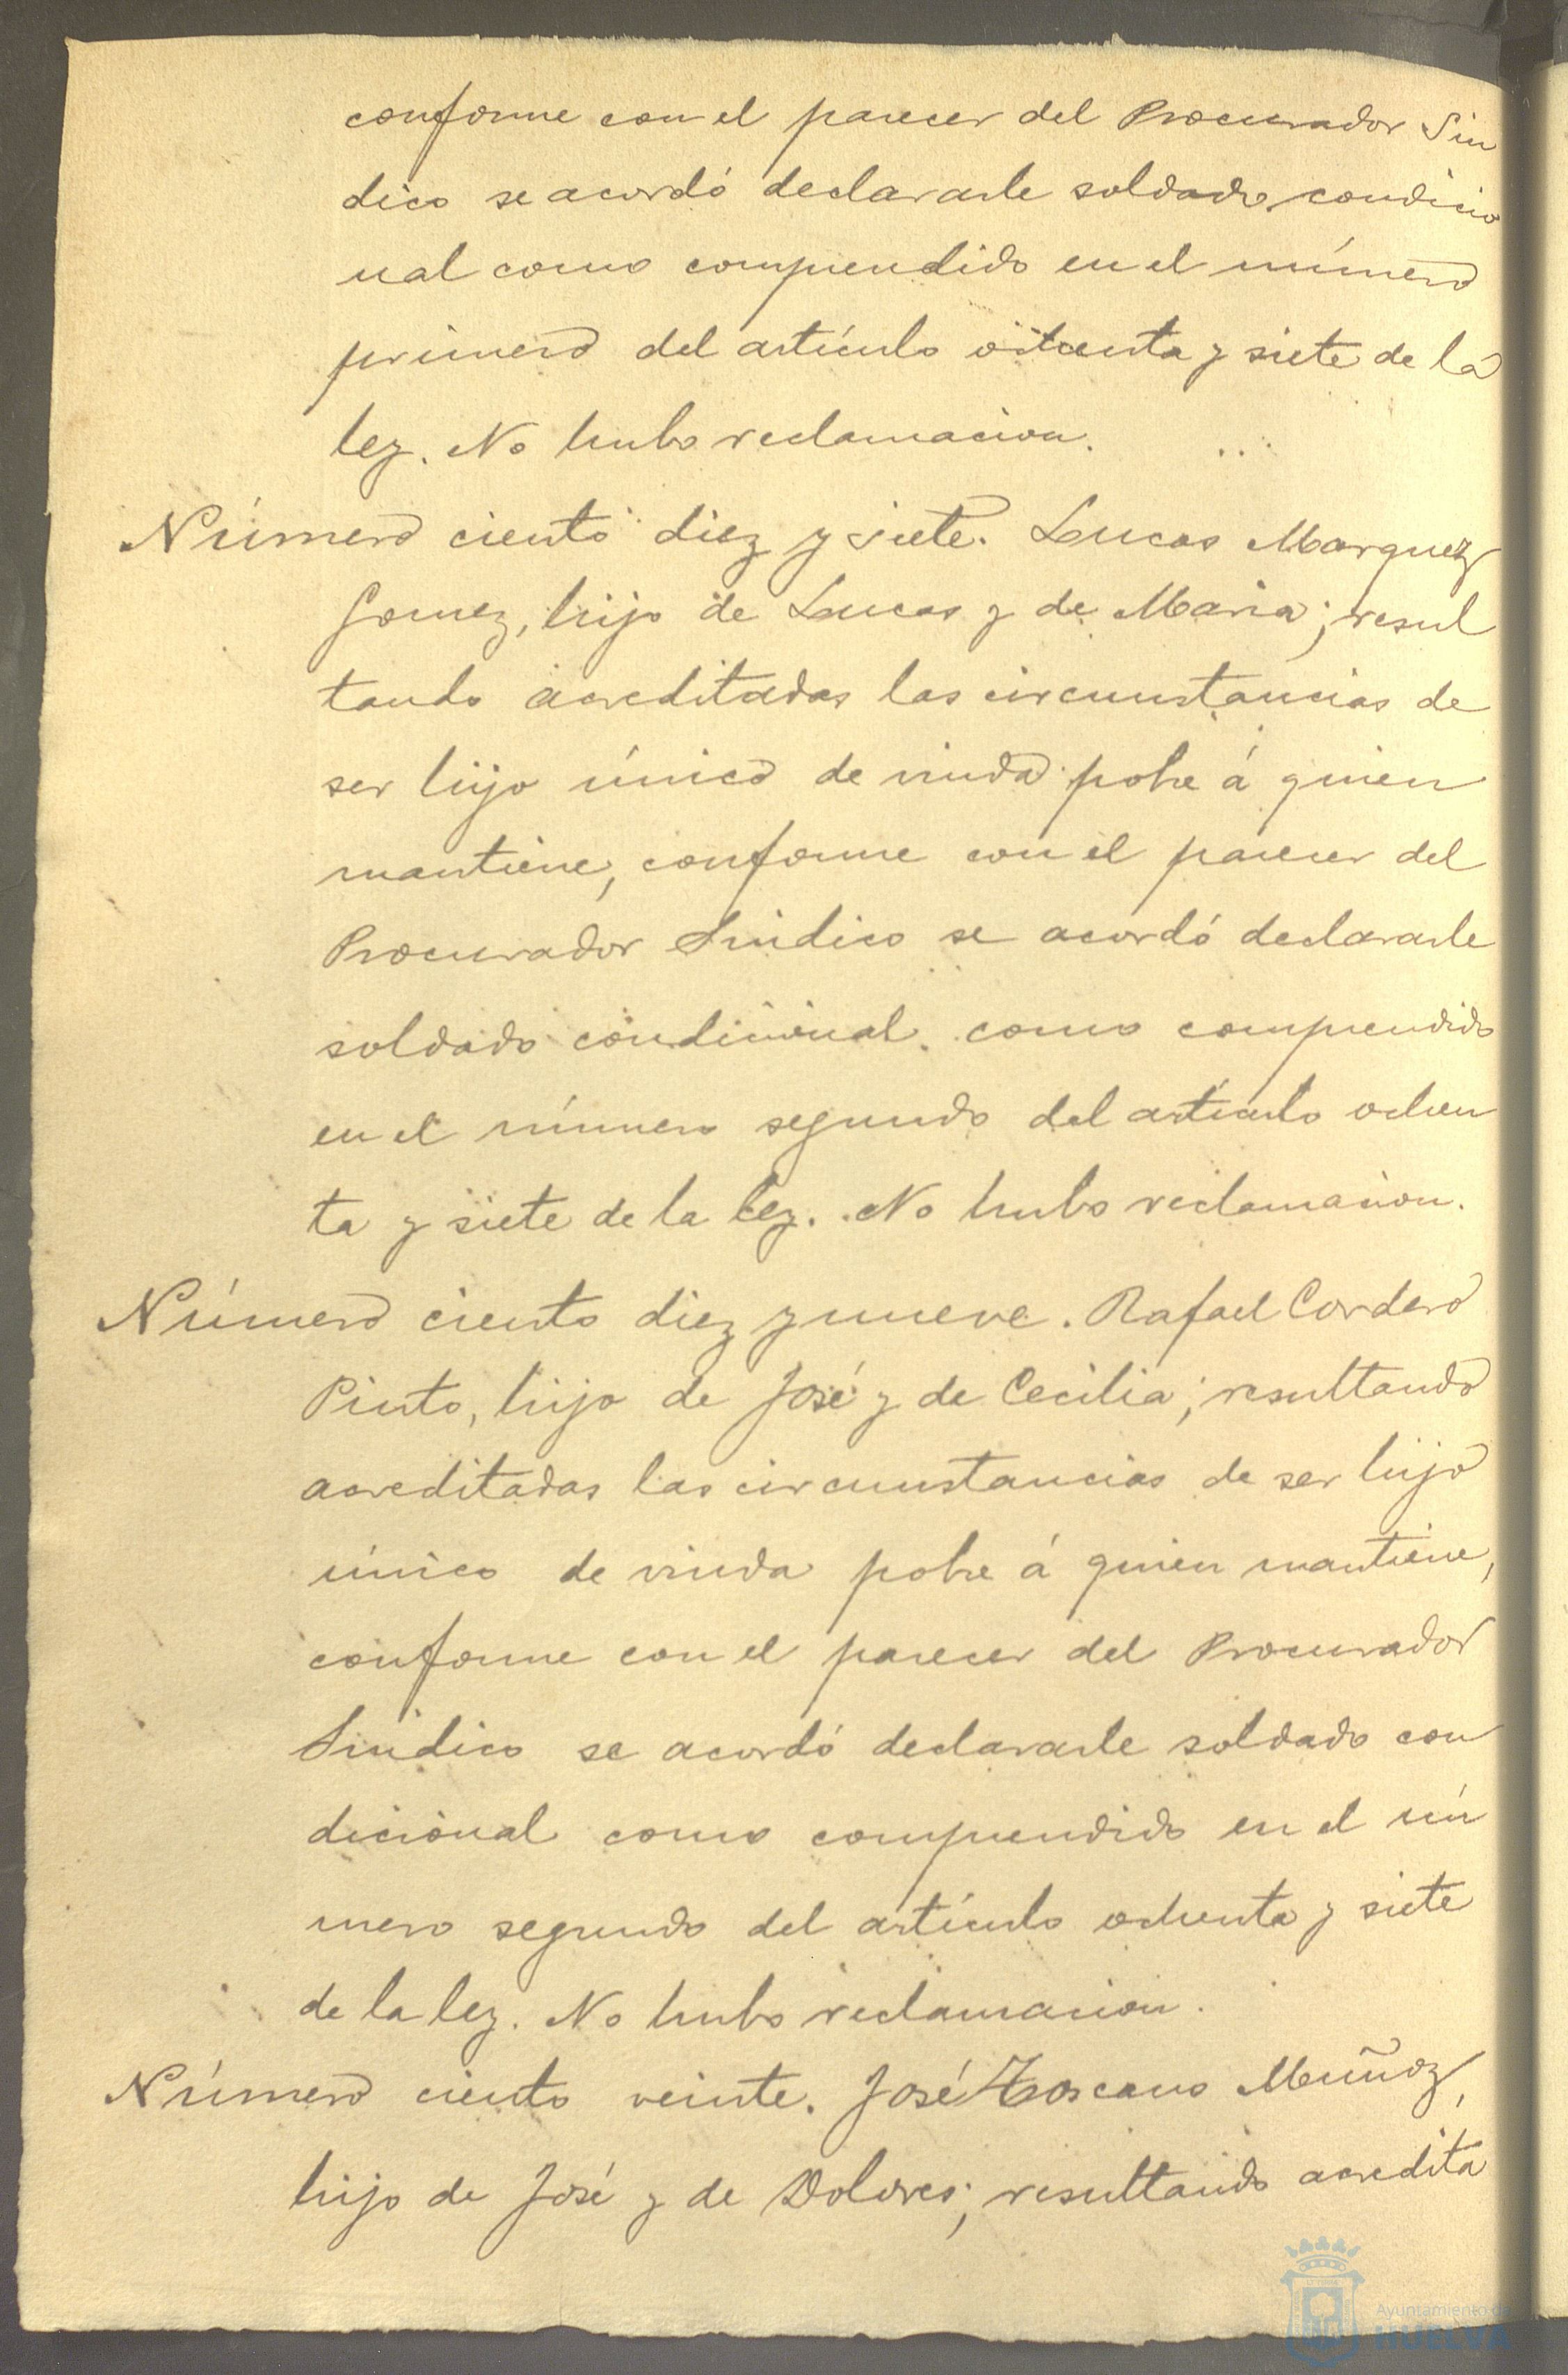 conforme con el parecer del Procurador Sin
dico se acordó declararle soldado condicio
nal como comprendido en el número
primero del artículo ochenta y siete de la
ley. No hubo reclamacion.
Número ciento diez y siete. Lucas Marquez
Gomez, hijo de Lucas y de Maria; resul
tando acreditadas las circunstancias de
ser hijo único de viuda pobre á quien
mantiene, conforme con el parecer del
Procurador Sindico se acordó declararle
soldado condicional como comprendido
en el número segundo del artículo ochen
ta y siete de la ley. No hubo reclamacion.
Número ciento diez y nueve. Rafael Cordero
Pinto, hijo de José y de Cecilia; resultando
acreditadas las circunstancias de ser hijo
único de viuda pobre á quien mantiene,
conforme con el parecer del Procurador
Sindico se acordó declararle soldado con
dicional como comprendido en el nú
mero segundo del artículo ochenta y siete
de la ley. No hubo reclamacion.
Número ciento veinte. José Toscano Muñoz,
hijo de José y de Dolores; resultando acredita
Ayuntamiento de
HUELVA